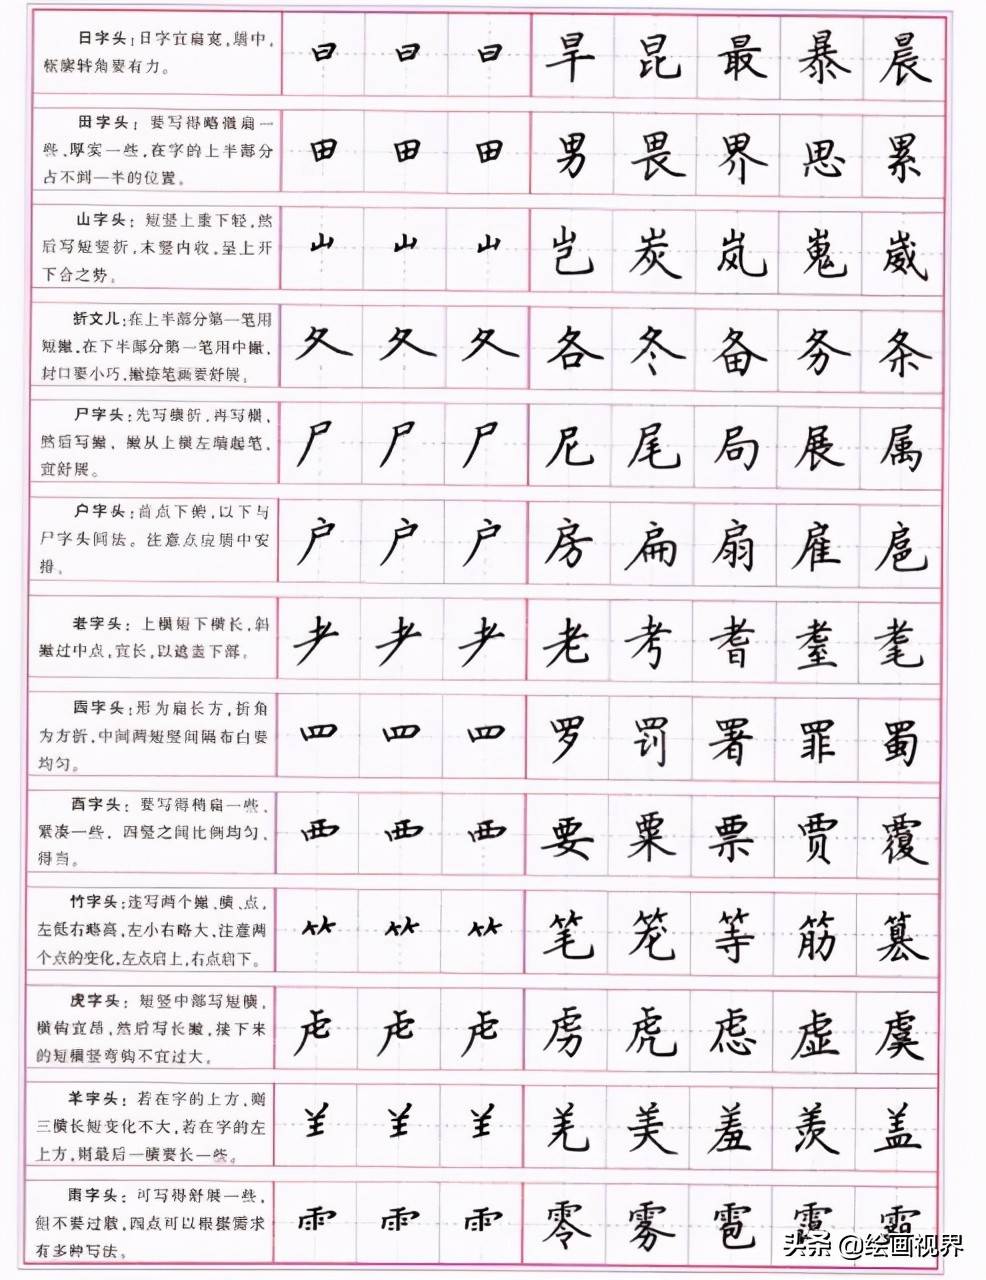 日字头:日字宜扁宽,居中, 日 日 日 旱 昆 最 暴 晨
横竖转角要有力。
田字头: 要写得略微扁一 田 田 田 男 畏 界 思 累
些,厚实一些,在字的上半部分
占不到一半的位置。
山字头: 短竖上重下轻,然 山 山 山 岂 炭 岚 嵬 崴
后写短竖折,末竖内收,呈上开
下合之势。
折文儿:在上半部分第一笔用 夂 夂 夂 各 冬 备 务 条
短撇,在下半部分第一笔用中撇,
封口要小巧,撇捺笔画要舒展。
尸字头:先写横折,再写横, 尸 尸 尸 尼 尾 局 展 属
然后写撇, 撇从上横左端起笔,
宜舒展。
户字头: 首点下俯,以下与 户 户 户 房 扁 扇 雇 扈
尸字头同法。注意点应居中安
排。
老字头: 上横短下横长,斜 耂 耂 耂 老 考 耆 耋 耄
撇过中点,宜长,以遮盖下部。
四字头:形为扁长方,折角 罒 罒 罒 罗 罚 署 罪 蜀
为方折,中间两短竖间隔布白要
均匀。
西字头: 要写得稍扁一些, 覀 覀 覀 要 粟 票 贾 覆
紧凑一些, 四竖之间比例均匀,
得当。
竹字头:连写两个撇、横、点, ⺮ ⺮ ⺮ 笔 笼 等 筋 篡
左低右略高,左小右略大,注意两
个点的变化,左点启上,右点启下。
虎字头: 短竖中部写短横, 虍 虍 虍 虏 虎 虑 虚 虞
横钩宜昂,然后写长撇,接下来
的短横竖弯钩不宜过大。
羊字头: 若在字的上方,则 ⺷ ⺷ ⺷ 羌 美 羞 羡 盖
三横长短变化不大,若在字的左
上方,则最后一横要长一些。
雨字头: 可写得舒展一些, ⻗ ⻗ ⻗ 零 雾 雹 霜
但不要过散,四点可以根据需求
有多种写法。
头条 @绘画视界